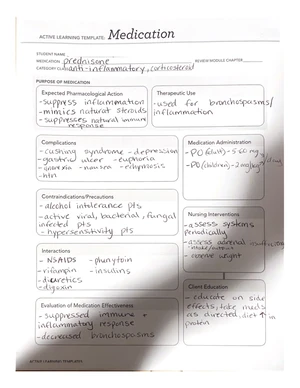 ACTIVE LEARNING TEMPLATE: Medication
STUDENT NAME
MEDICATION prednisone
REVIEW MODULE CHAPTER
CATEGORY CLASS anti-inflammatory, corticosteroid
PURPOSE OF MEDICATION
Expected Pharmacological Action
- suppress inflammation
- mimics natural steroids
- suppresses natural immune
response
Therapeutic Use
- used for bronchospasms/
inflammation
Complications
- cushing syndrome - depression
- gastric ulcer - euphoria
- anorexia - nausea - echymosis
- htn
Medication Administration
- PO (adult) - 5-60 mg
- PO (children) - 2mg/kg/day
Contraindications/Precautions
- alcohol intolerance pts
- active viral, bacterial, fungal
infected pts
- hypersensitivity pts
Nursing Interventions
- assess systems
periodically
- assess adrenal insufficiency
- intake/output
- observe weight
Interactions
- NSAIDS - phenytoin
- rifampin - insulins
- diuretics
- digoxin
Evaluation of Medication Effectiveness
- suppressed immune +
inflammatory response
- decreased bronchospasms
Client Education
- educate on side
effects, take meds
as directed, diet ↑ in
protein
ACTIVE LEARNING TEMPLATES